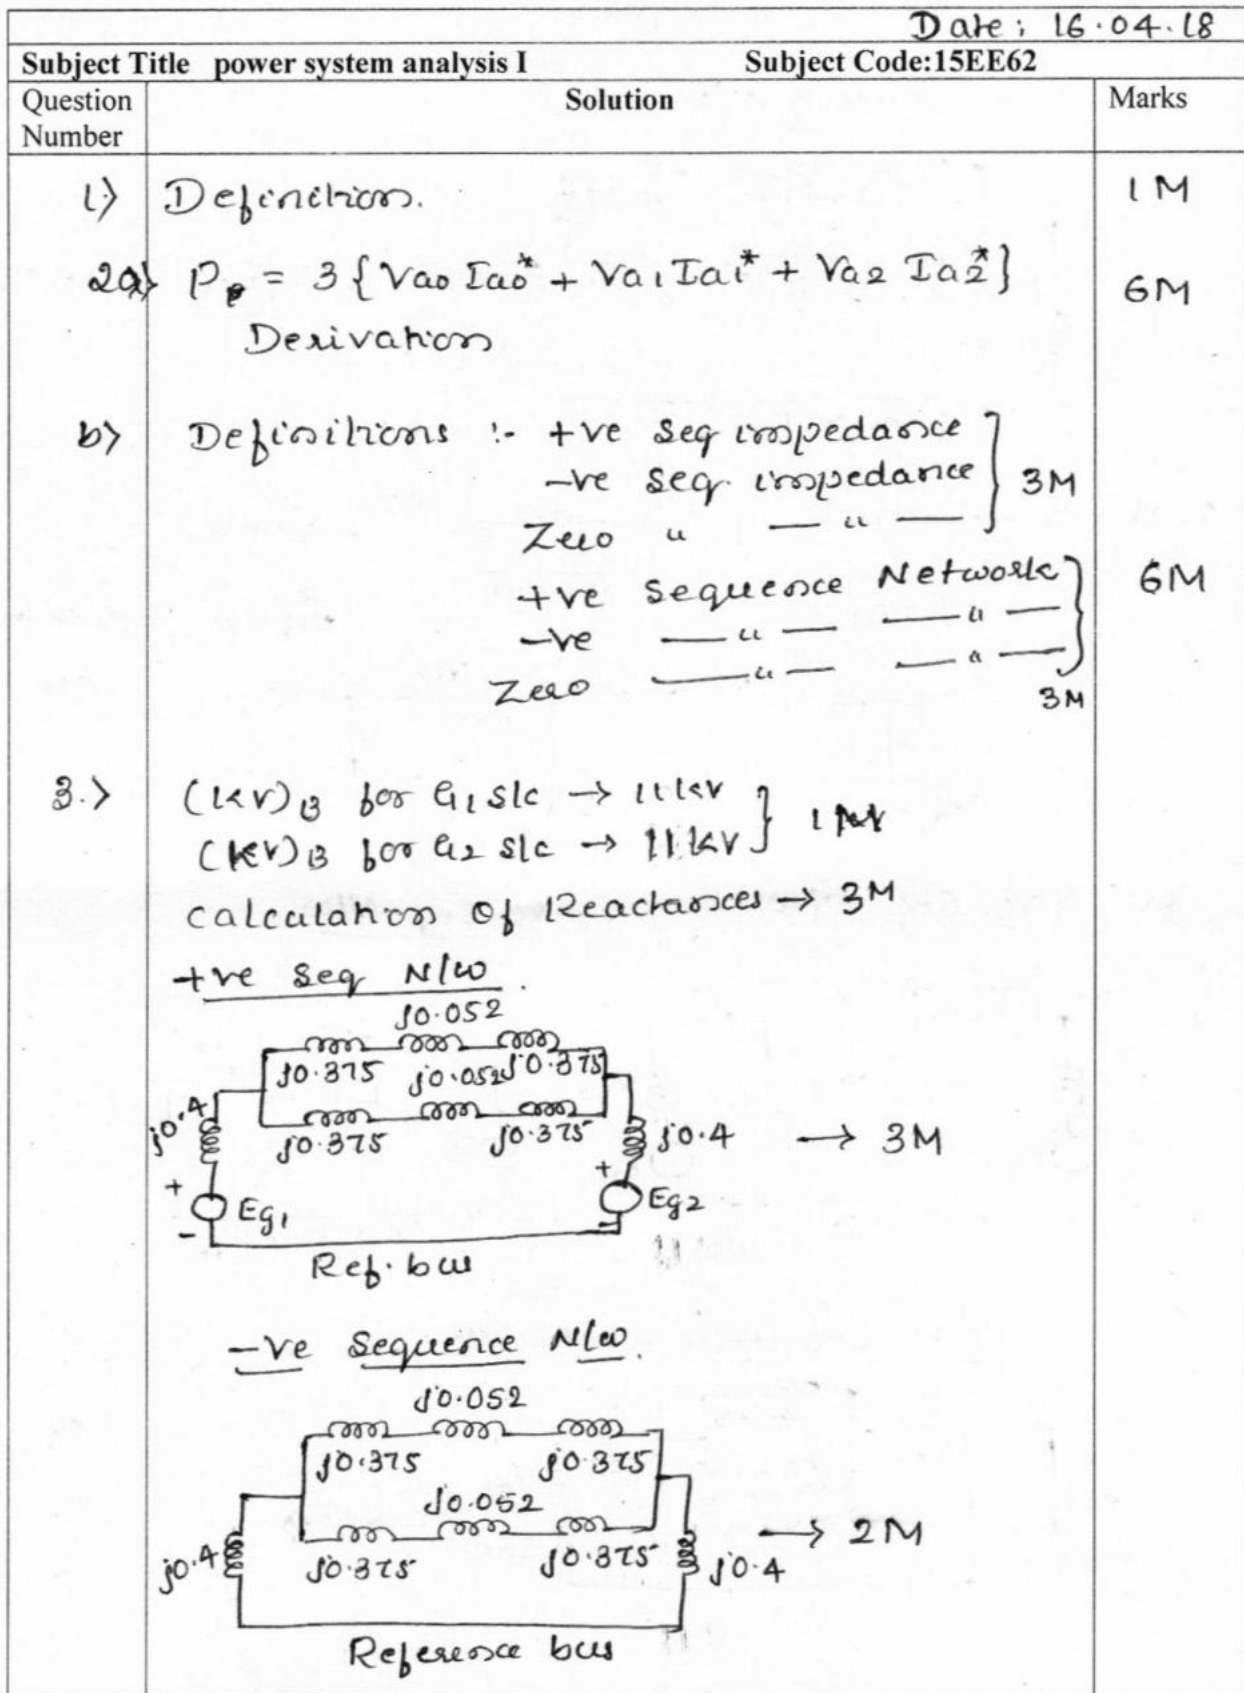 Date: 16.04.18
Subject Title power system analysis I Subject Code:15EE62
Question Number Solution Marks
1) Definition. 1M
2a) P = 3 {Va0 Ia0* + Va1 Ia1* + Va2 Ia2*} 6M
Derivation
b) Definitions :- +ve seq impedance
-ve seq. impedance 3M
Zero " — " —
+ve sequence Network 6M
-ve — " — — " —
Zero — " — — " —
3M
3.) (KV)B for G1 S/c → 11KV
(KV)B for G2 S/c → 11KV } 1M
calculation of Reactances → 3M
+ve seq N/W.
j0.052
j0.375 j0.052 j0.375
j0.4 j0.375 j0.375 j0.4 → 3M
+ +
Eg1 Eg2
- -
Ref. bus
-ve sequence N/W.
j0.052
j0.375 j0.375
j0.052
j0.4 j0.375 j0.375 j0.4 → 2M
Reference bus